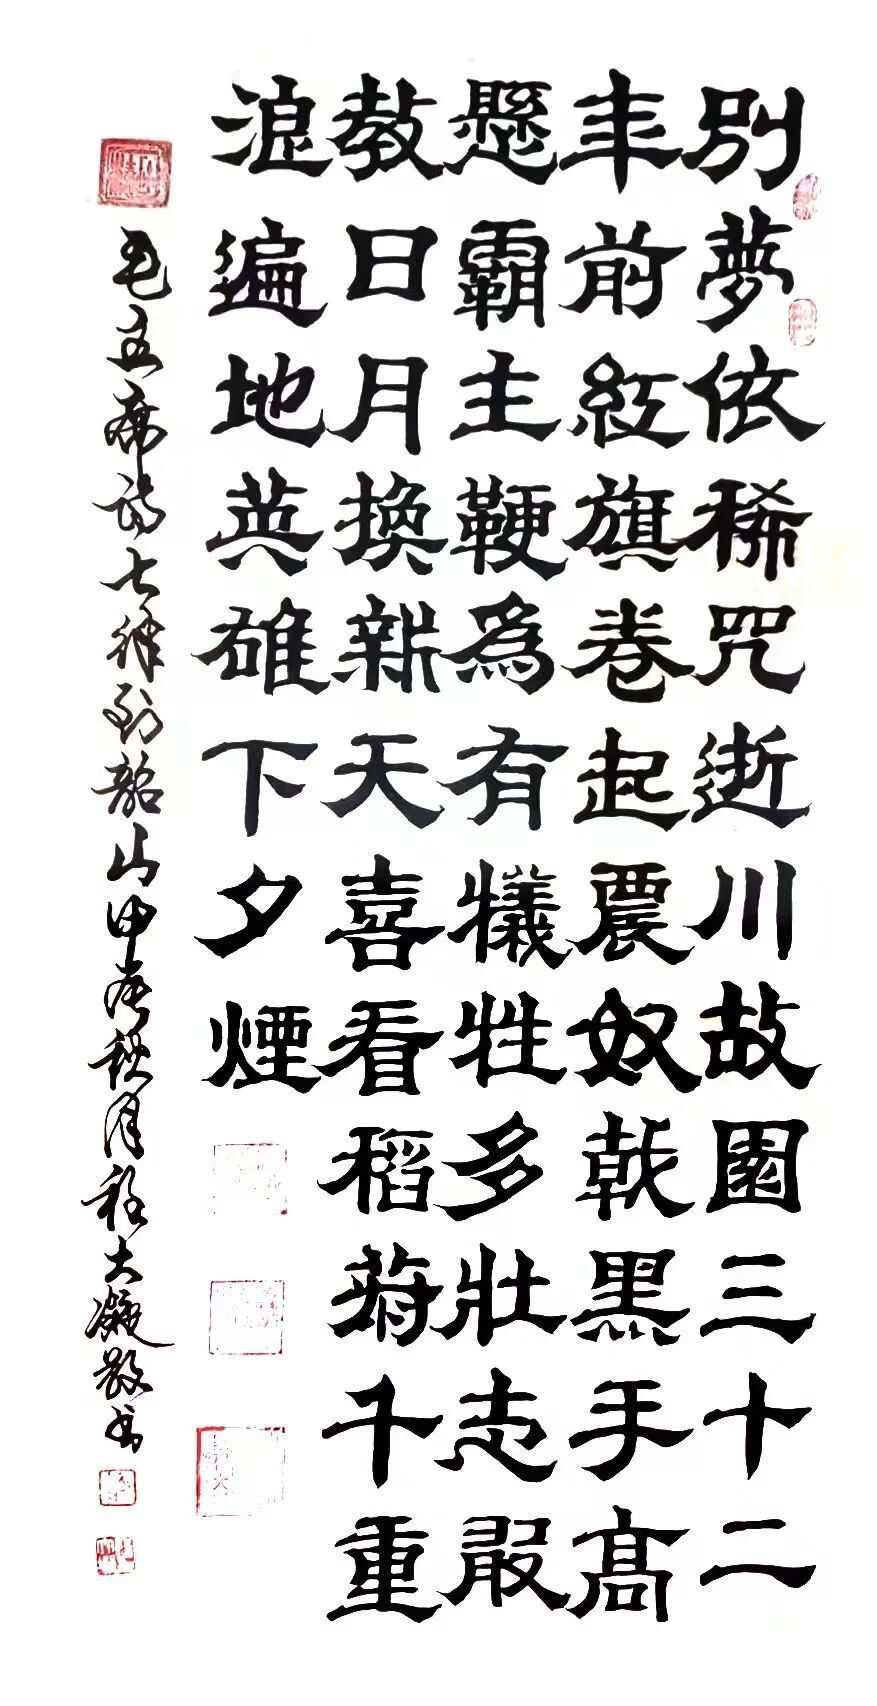 別夢依稀咒逝川故園三十二
年前紅旗卷起農奴戟黑手高
懸霸主鞭爲有犧牲多壯志敢
教日月換新天喜看稻菽千重
浪遍地英雄下夕煙
毛主席詩七律到韶山甲辰秋月程大凝敬书